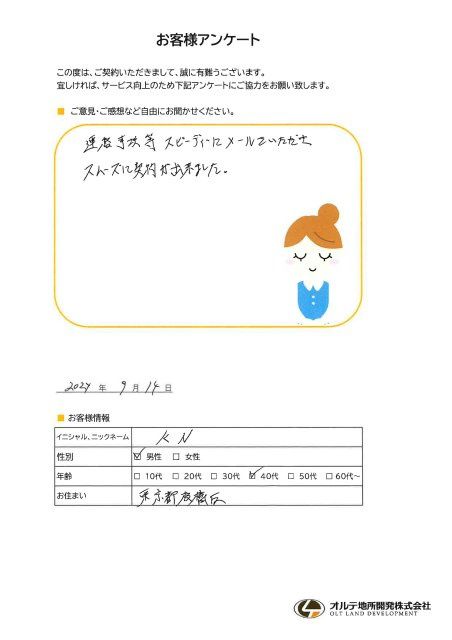 お客様アンケート
この度は、ご契約いただきまして、誠に有難うございます。
宜しければ、サービス向上のため下記アンケートにご協力をお願い致します。
■ ご意見・ご感想など自由にお聞かせください。
連絡事項等 スピーディーにメールでいただき
スムーズに契約が出来ました。
2024 年 9 月 14 日
■ お客様情報
イニシャル、ニックネーム K N
性別 ☑ 男性 □ 女性
年齢 □ 10代 □ 20代 □ 30代 ☑ 40代 □ 50代 □ 60代~
お住まい 東京都板橋区
オルテ地所開発株式会社
OLT LAND DEVELOPMENT